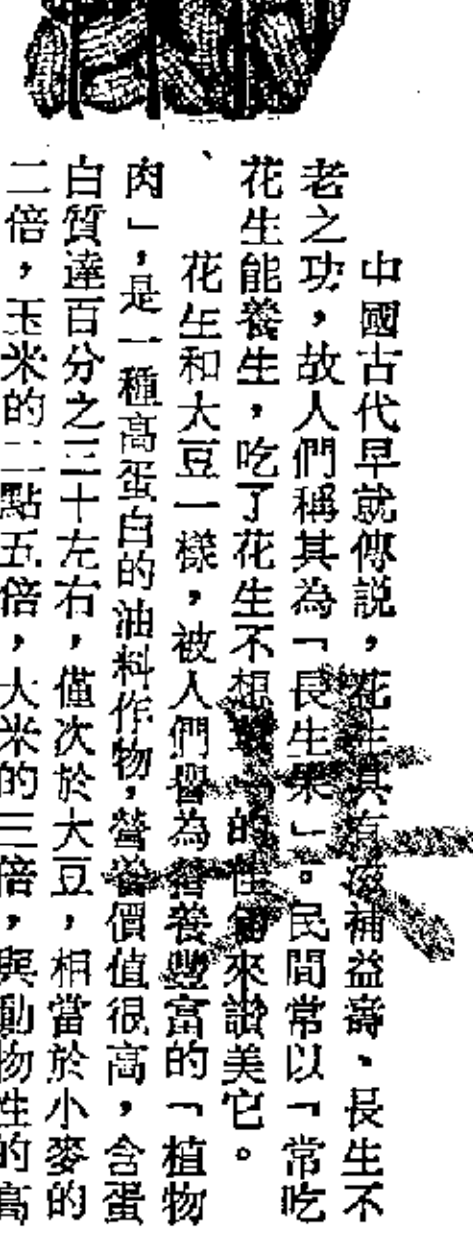 中國古代早就傳說，花生具有滋補益壽、長生不
老之功，故人們稱其為「長生果」。民間常以「常吃
花生能養生，吃了花生不想葷」的佳句來讚美它。
花生和大豆一樣，被人們譽為營養豐富的「植物
肉」，是一種高蛋白的油料作物，營養價值很高，含蛋
白質達百分之三十左右，僅次於大豆，相當於小麥的
二倍，玉米的二點五倍，大米的三倍，與動物性的高